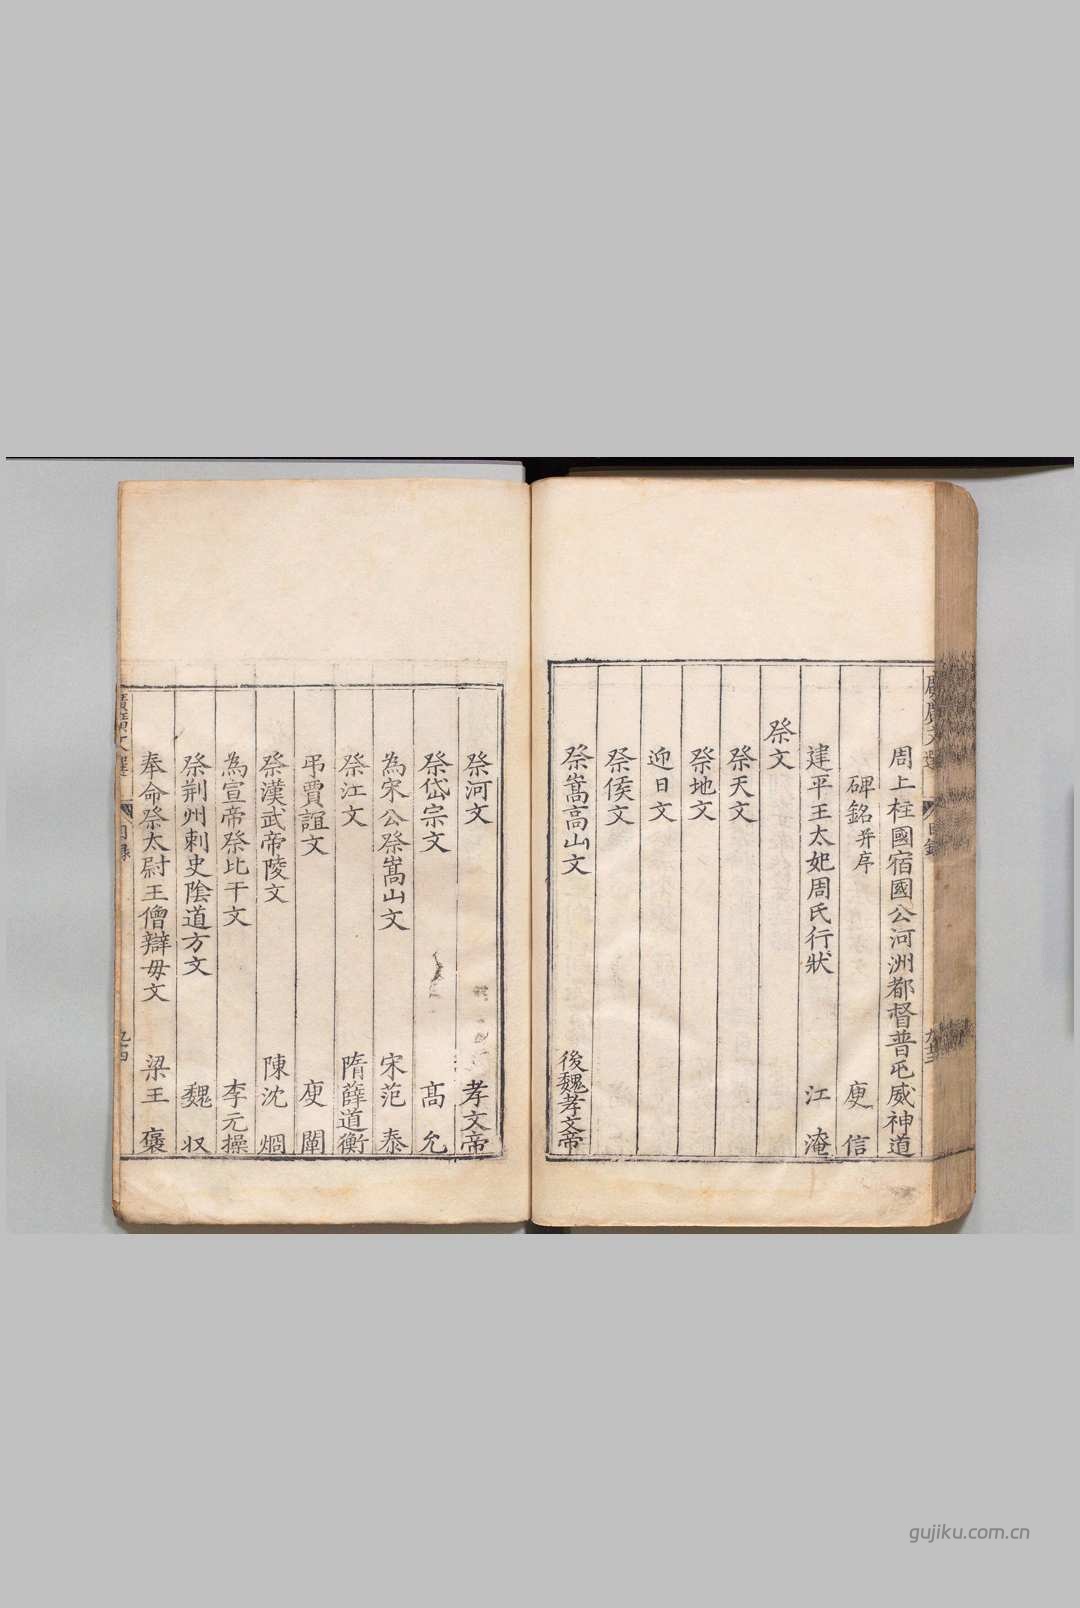 周上柱國宿國公河洲都督普屯威神道
碑銘并序 庾信
建平王太妃周氏行狀 江淹
祭文
祭天文
祭地文
迎日文
祭侯文
祭嵩高山文 後魏孝文帝
祭河文 孝文帝
祭岱宗文 高允
為宋公祭嵩山文 宋范泰
祭江文 隋薛道衡
弔賈誼文 庾闡
祭漢武帝陵文 陳沈烱
為宣帝祭比干文 李元操
祭荊州刺史陰道方文 魏收
奉命祭太尉王僧辯毋文 梁王褒
廣文選 目錄 九十四
gujiku.com.cn